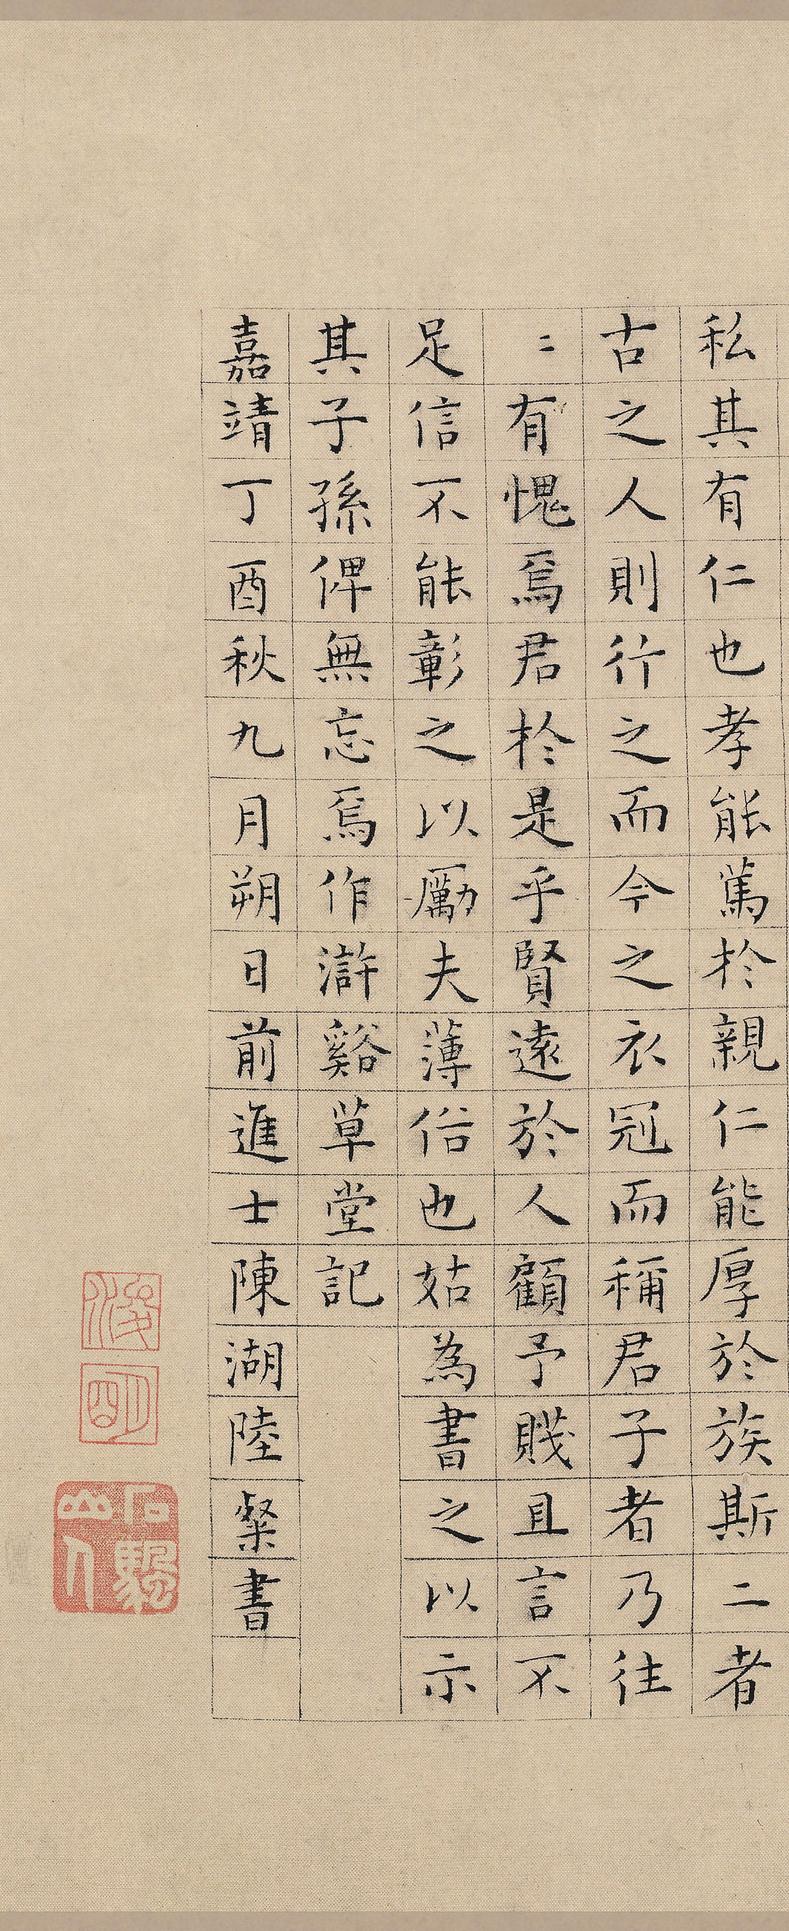 私其有仁也孝能篤於親仁能厚於族斯二者
古之人則行之而今之衣冠而稱君子者乃往
〻有愧焉君於是乎賢遠於人顧予賤且言不
足信不能彰之以勵夫薄俗也姑為書之以示
其子孫俾無忘焉作滸谿草堂記
嘉靖丁酉秋九月朔日前進士陳湖陸粲書
浚明